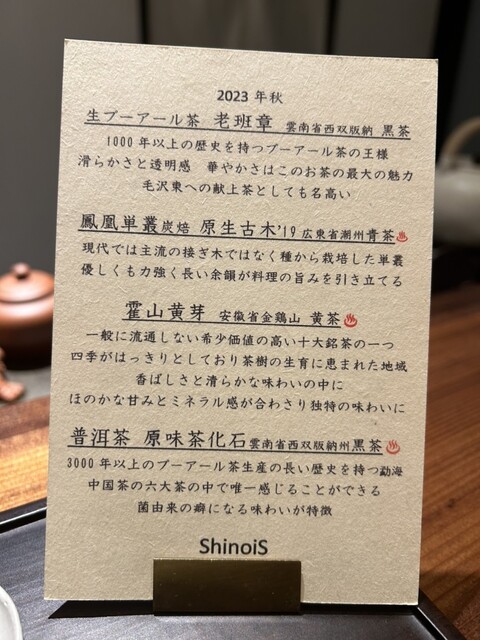 2023 年秋
生プーアール茶 老班章 雲南省西双版納 黒茶
1000 年以上の歴史を持つプーアール茶の王様
滑らかさと透明感 華やかさはこのお茶の最大の魅力
毛沢東への献上茶としても名高い
鳳凰単叢炭焙 原生古木'19 広東省潮州青茶♨
現代では主流の接ぎ木ではなく種から栽培した単叢
優しくも力強く長い余韻が料理の旨みを引き立てる
霍山黄芽 安徽省金鶏山 黄茶♨
一般に流通しない希少価値の高い十大銘茶の一つ
四季がはっきりとしており茶樹の生育に恵まれた地域
香ばしさと清らかな味わいの中に
ほのかな甘みとミネラル感が合わさり独特の味わいに
普洱茶 原味茶化石雲南省西双版納州黒茶♨
3000 年以上のプーアール茶生産の長い歴史を持つ勐海
中国茶の六大茶の中で唯一感じることができる
菌由来の癖になる味わいが特徴
ShinoiS